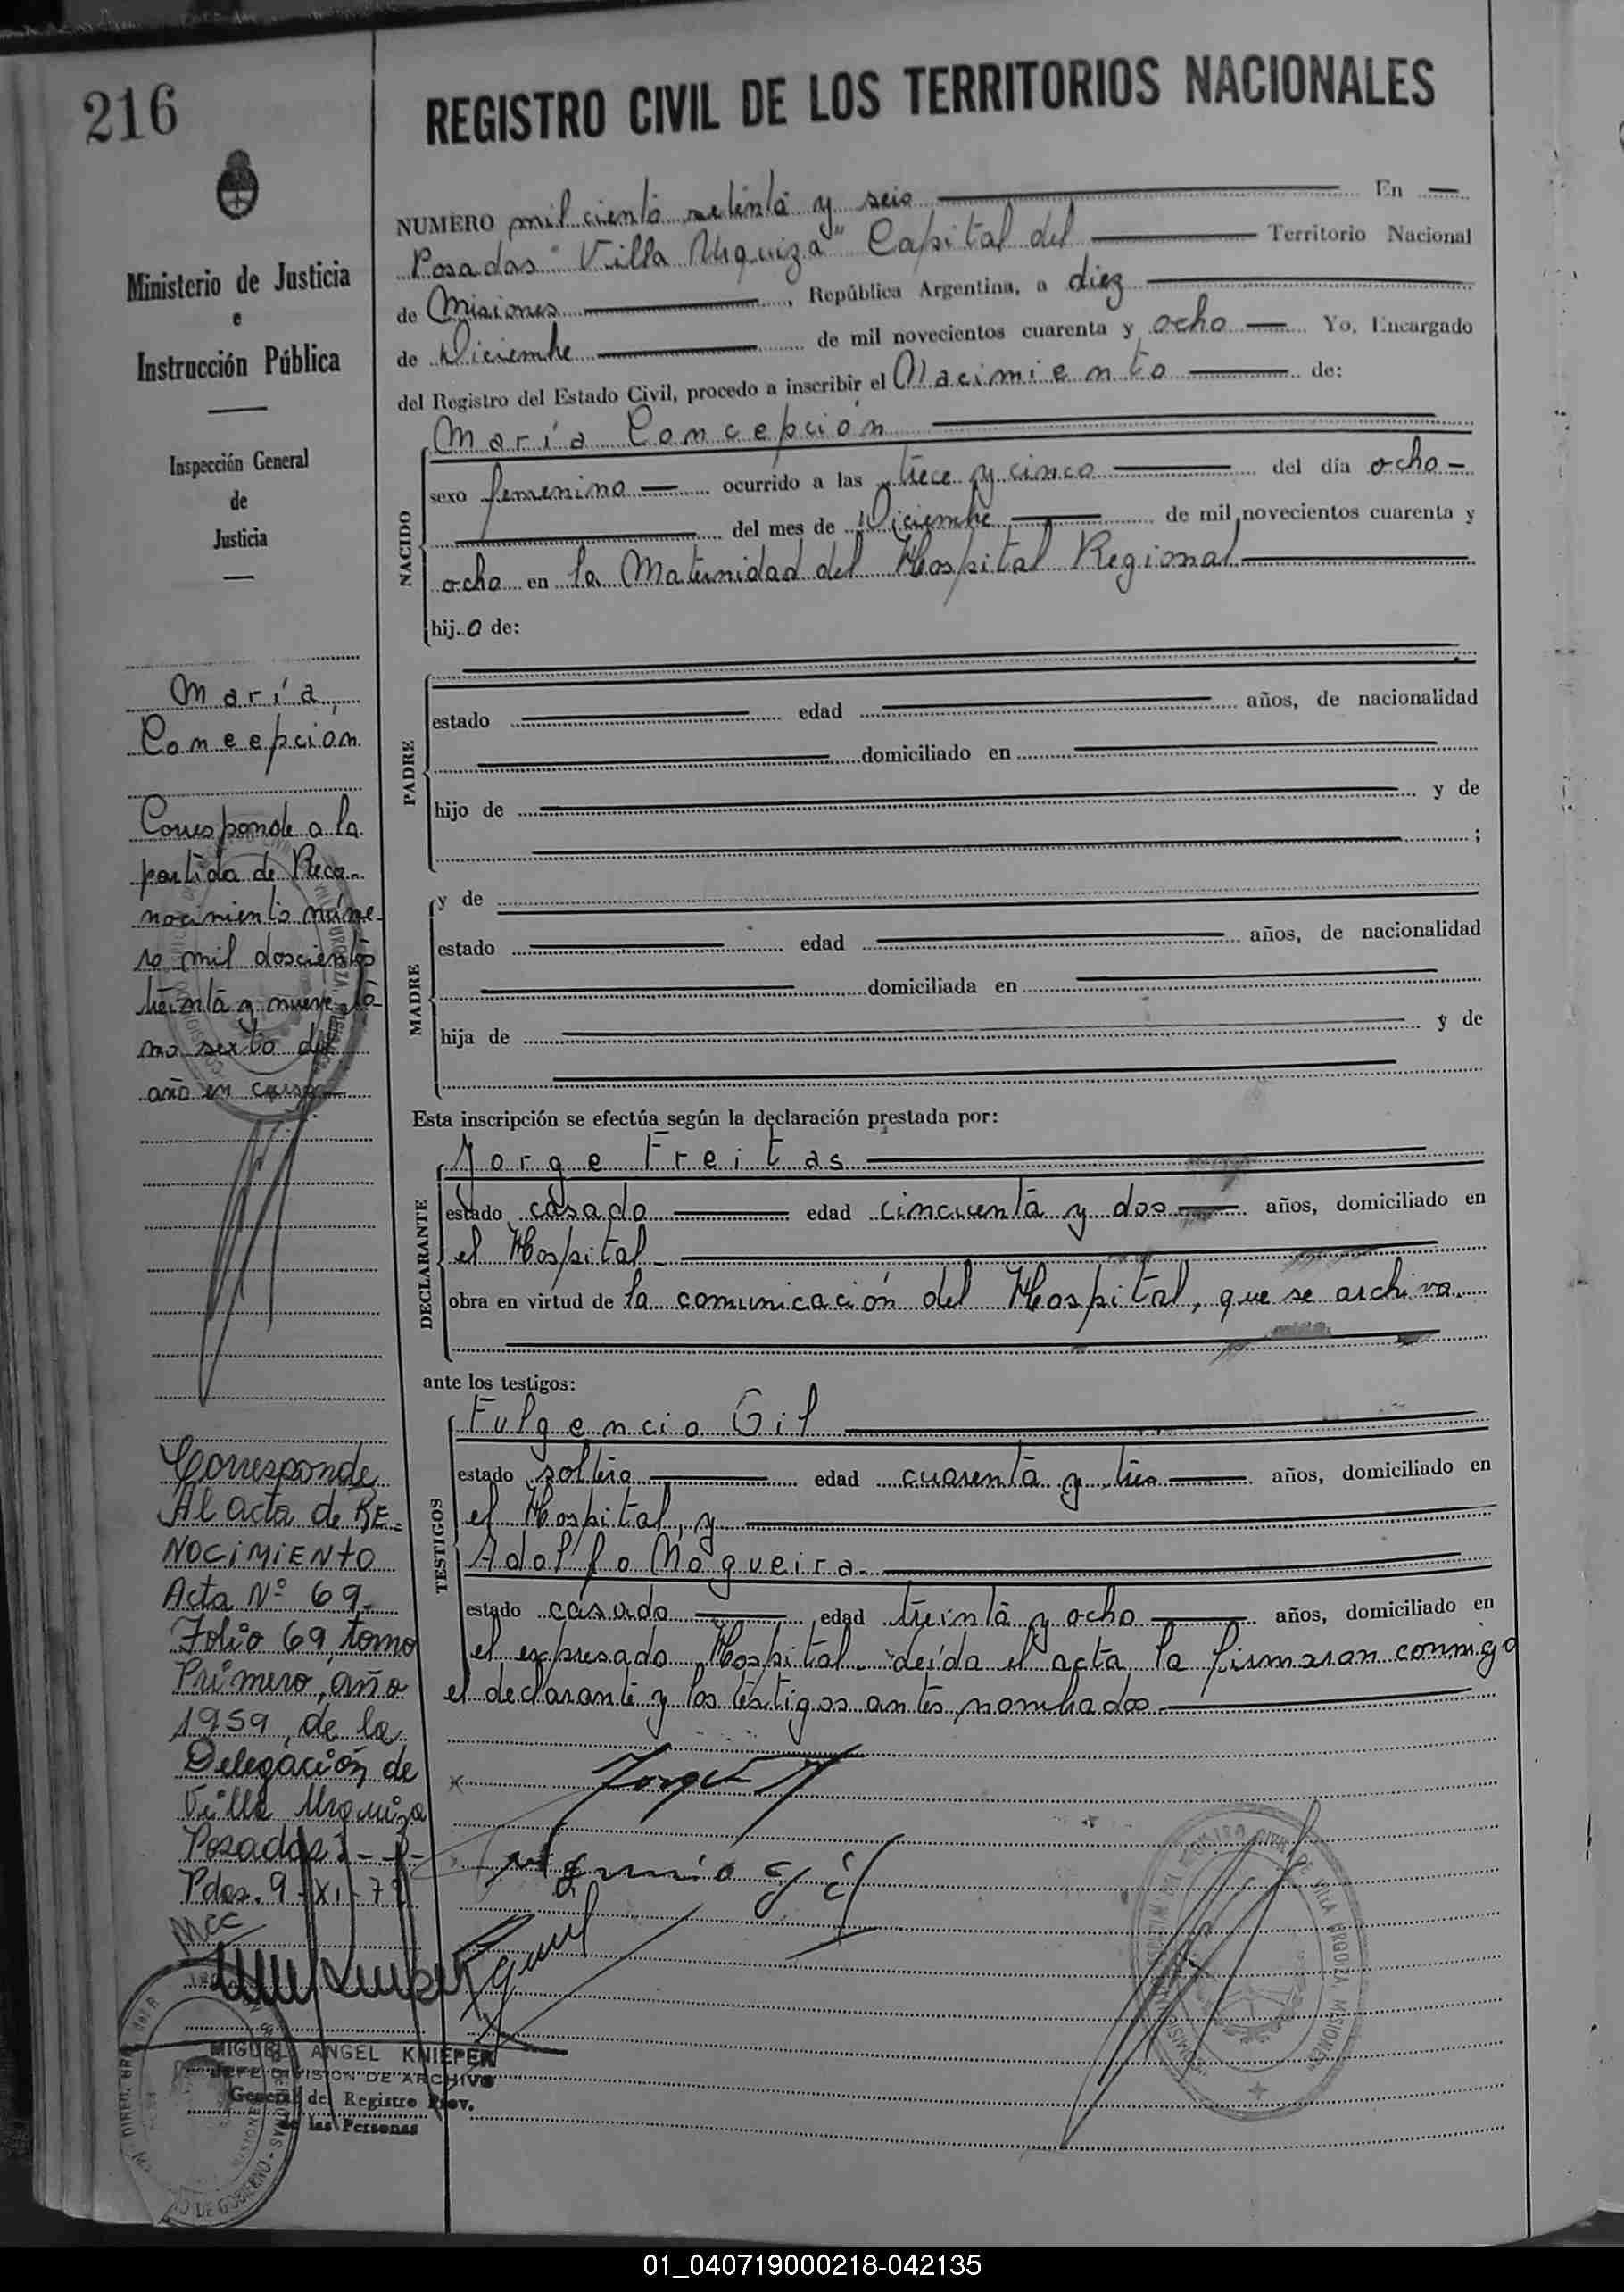 216
REGISTRO CIVIL DE LOS TERRITORIOS NACIONALES
Ministerio de Justicia
e
Instrucción Pública
Inspección General
de
Justicia
NUMERO mil ciento setenta y seis En
Posadas "Villa Urquiza" Capital del Territorio Nacional
de Misiones, República Argentina, a diez
de Diciembre de mil novecientos cuarenta y ocho Yo, Encargado
del Registro del Estado Civil, procedo a inscribir el Nacimiento de:
María Concepción
NACIDO
sexo femenino ocurrido a las trece y cinco del día ocho
del mes de Diciembre de mil novecientos cuarenta y
ocho en la Maternidad del Hospital Regional
hij.a de:
PADRE
estado edad años, de nacionalidad
domiciliado en
hijo de y de
;
MADRE
y de
estado edad años, de nacionalidad
domiciliada en
hija de y de
Esta inscripción se efectúa según la declaración prestada por:
DECLARANTE
Jorge Freitas
estado casado edad cincuenta y dos años, domiciliado en
el Hospital
obra en virtud de la comunicación del Hospital, que se archiva.
ante los testigos:
TESTIGOS
Fulgencio Gil
estado soltero edad cuarenta y tres años, domiciliado en
el Hospital, y
Adolfo Nogueira
estado casado edad treinta y ocho años, domiciliado en
el expresado Hospital. Leída el acta la firmaron conmigo
el declarante y los testigos antes nombrados.
María
Concepción
Corresponde a la
partida de Reco-
nocimiento núme-
ro mil doscientos
treinta y nueve to-
mo sexto del
año en curso
Corresponde
Al acta de RE=
NOCIMIENTO
Acta Nº 69-
Folio 69, tomo
Primero, año
1959, de la
Delegación de
Villa Urquiza
Posadas
Pdas. 9-XI-7
MCC
MIGUEL ANGEL KNIEPER
JEFE DIVISION DE ARCHIVO
General del Registro Prov.
de las Personas
DE GOBIERNO
VILLA URQUIZA MISIONES
01_040719000218-042135